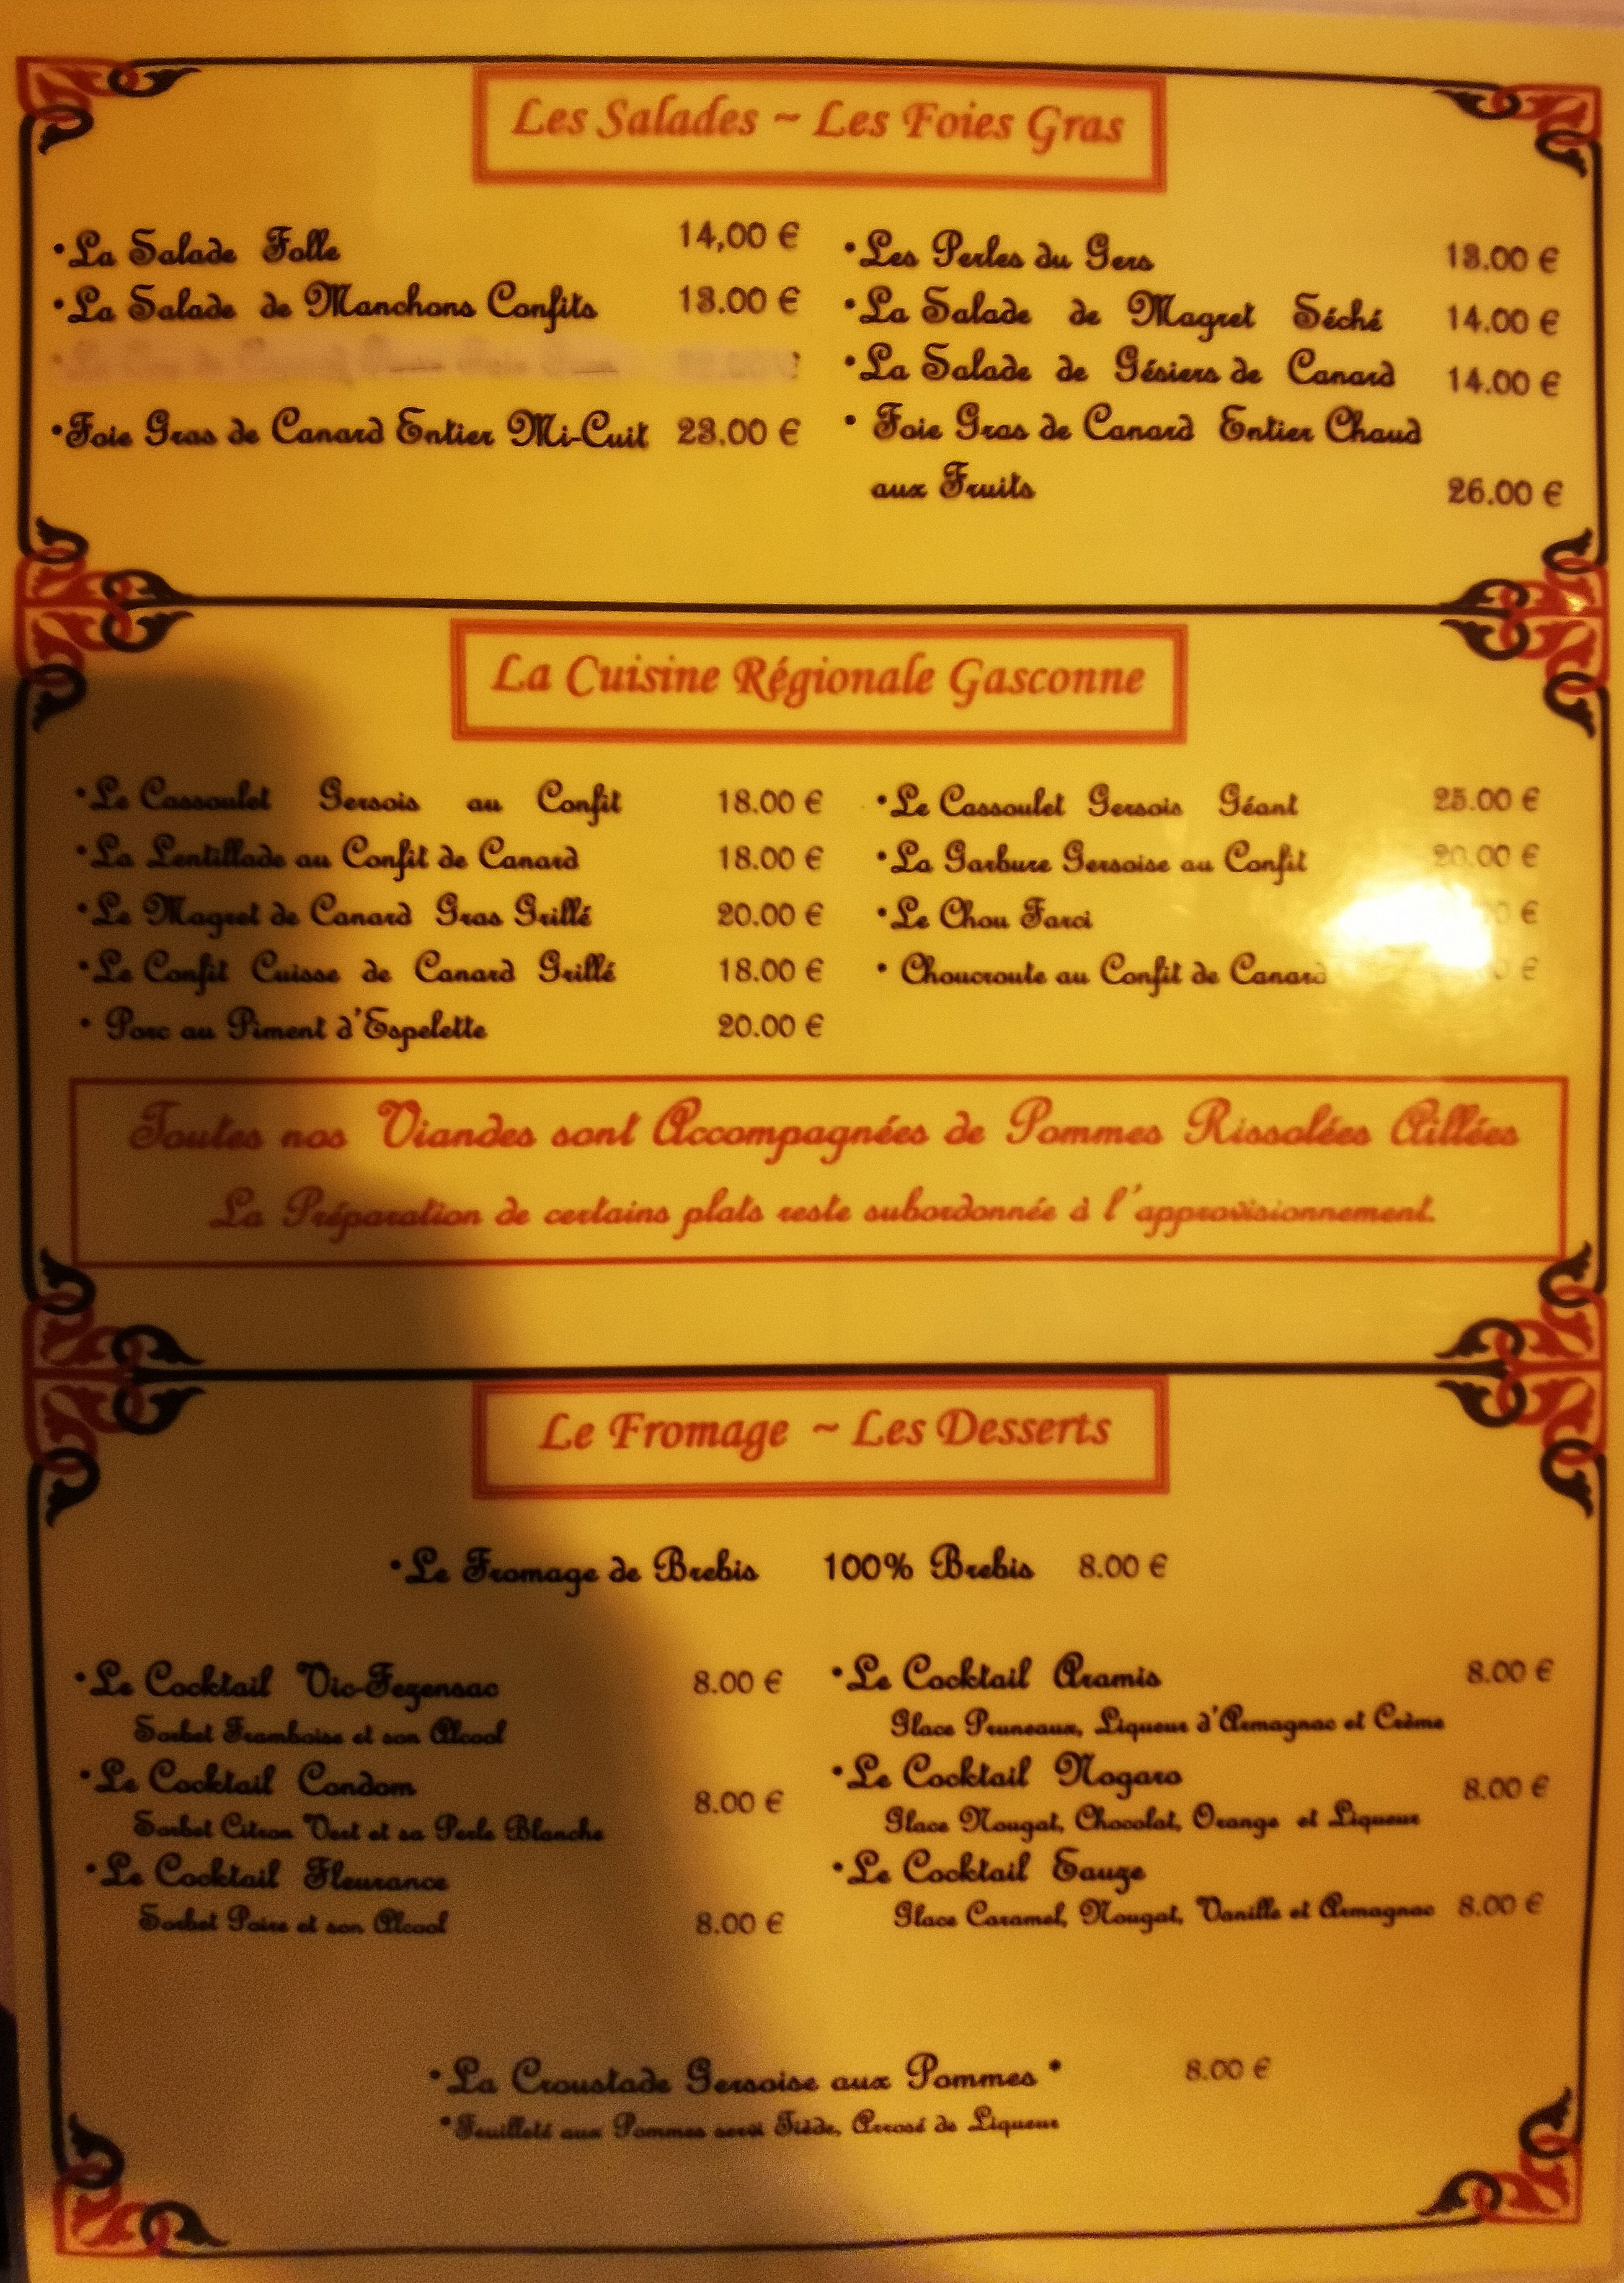 Les Salades ~ Les Foies Gras
•La Salade Folle 14,00 €
•La Salade de Manchons Confits 13.00 €
•Foie Gras de Canard Entier Mi-Cuit 23.00 €
•Les Perles du Gers 13.00 €
•La Salade de Magret Séché 14.00 €
•La Salade de Gésiers de Canard 14.00 €
• Foie Gras de Canard Entier Chaud
aux Fruits 26.00 €
La Cuisine Régionale Gasconne
•Le Cassoulet Gersois au Confit 18.00 €
•La Lentillade au Confit de Canard 18.00 €
•Le Magret de Canard Gras Grillé 20.00 €
•Le Confit Cuisse de Canard Grillé 18.00 €
• Porc au Piment d'Espelette 20.00 €
•Le Cassoulet Gersois Géant 25.00 €
•La Garbure Gersoise au Confit 20.00 €
•Le Chou Farci €
• Choucroute au Confit de Canard €
Toutes nos Viandes sont Accompagnées de Pommes Rissolées Aillées
La Préparation de certains plats reste subordonnée à l'approvisionnement.
Le Fromage ~ Les Desserts
•Le Fromage de Brebis 100% Brebis 8.00 €
•Le Cocktail Vic-Fezensac 8.00 €
Sorbet Framboise et son Alcool
•Le Cocktail Condom 8.00 €
Sorbet Citron Vert et sa Perle Blanche
•Le Cocktail Fleurance
Sorbet Poire et son Alcool 8.00 €
•Le Cocktail Aramis 8.00 €
Glace Pruneaux, Liqueur d'Armagnac et Crème
•Le Cocktail Nogaro 8.00 €
Glace Nougat, Chocolat, Orange et Liqueur
•Le Cocktail Eauze
Glace Caramel, Nougat, Vanille et Armagnac 8.00 €
•La Croustade Gersoise aux Pommes * 8.00 €
*Feuilleté aux Pommes servi Tiède, Arrosé de Liqueur